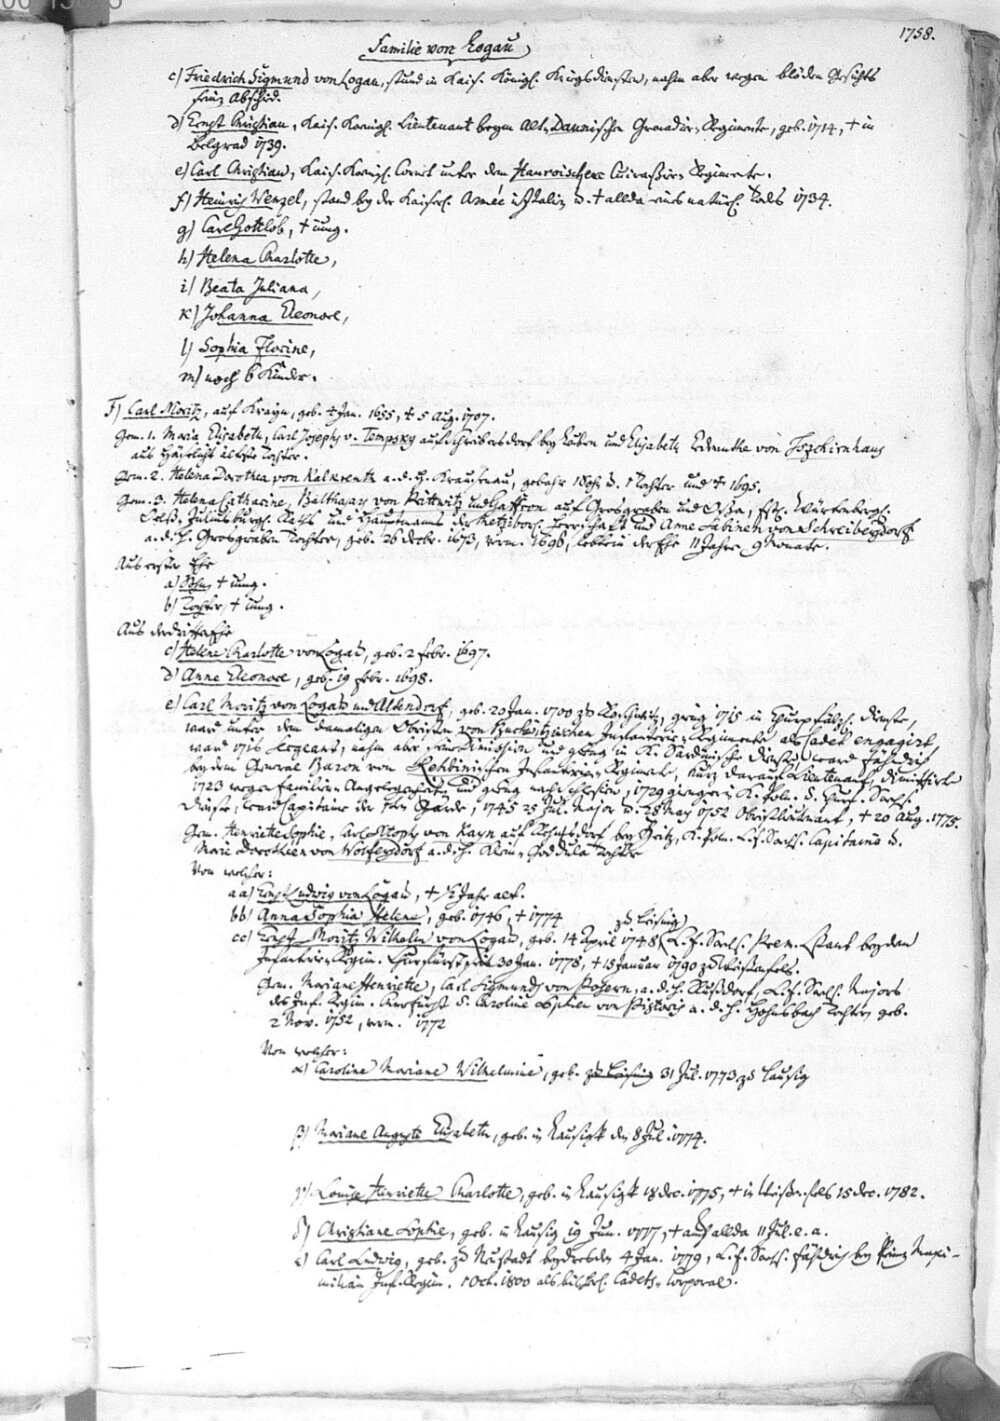 1758.
Familie von Logau
c) Friedrich Sigmund von Logau, stund in Kais. Königl. Kriegsdiensten, nahm aber wegen blöden Gesichts
seinen Abschied.
d) Ernst Christian, Kais. Koenigl. Lieutenant beym Alt-Daunischen Grenadier-Regimente, geb. 1714, + in
Belgrad 1739.
e) Carl Christian, Kais. Koenigl. Cornet unter dem Cuirassier-Regimente.
f) Heinrich Wenzel, stand bey der Kaiserl. Armée in Italien u. + allda eines natürl. Tods 1734.
g) Carl Gottlob, + jung.
h) Helena Charlotte,
i) Beata Juliana,
k) Johanna Eleonore,
l) Sophia Florine,
m) noch 6 Kinder.
F) Carl Moritz, auf Krayn, geb. 4 Jan. 1655, + 5 Aug. 1707.
Gem. 1. Maria Elisabeth, Carl Josephs v. Tempsky auf Schreibersdorf bey Lauban und Elisabeth von Tschirnhaus
aus älteste Tochter.
Gem. 2. Helena Dorothea von Kalkreuth a.d.H. gebahr 1 Sohn u. 1 Tochter und + 1695.
Gem. 3. Helena Catharine, Balthasar von Prittwitz und Gaffron auf Grosgraben und fstl. Würtenbergl.
Oelß. Juliusburgl. Raths und Hauptmanns der Herrschaft und Anne Sabinen von Schreibersdorf
a.d.H. Grosgraben Tochter, geb. 26 Octbr. 1673, verm. 1696, lebten in der Ehe 11 Jahre 9 Monate.
Aus erster Ehe
a) Sohn, + jung.
b) Tochter, + jung.
Aus der dritten Ehe
c) Helene Charlotte von Logau, geb. 2 Febr. 1697.
d) Anne Eleonore, geb. 19 Febr. 1698.
e) Carl Moritz von Logau und Altendorf, geb. 20 Jan. 1700 zu gieng 1715 in Churpfälz. Dienste,
war unter dem damaligen Obristen von Infanterie-Regimente als Cadet engagirt,
war 1716 Sergeant, nahm aber seine Dimission und gieng in K. Sardinische Dienste, ward Fähndrich
bey dem General Baron von Rehbinischen Infanterie-Regimente, kurz darauf Lieutenant, dimittirte
1723 wegen Familien-Angelegenheit, und gieng nach Schlesien, 1729 gieng er in K. Poln. u. Churf. Sächs.
Dienste, ward Capitaine bey der Garde, 1745 25 Jul. Major u. 28 May 1752 Obristlieutnant, + 20 Aug. 1775.
Gem. Henriette Sophie, Carl von Kayn auf bey Zeitz, K. Poln. Chf. Sächs. Capitains u.
Marie Dorotheen von Wolfersdorf a.d.H. Klein-Goddula Tochter
Von welcher:
aa) Ernst Ludwig von Logau, + 1/2 Jahr alt.
bb) Anna Sophia Helene, geb. 1746, + 1774
zu Leisnig
cc) Ernst Moritz Wilhelm von Logau, geb. 14 April 1748 Chf. Sächs. Prem. Lieutnant bey dem
Infanterie-Regim. Churfürst seit 30 Jan. 1778, + 13 Januar 1790 zu Weissenfels.
Gem. Mariane Henriette, Carl Sigmunds von Posern, a.d.H. Chf. Sächs. Majors
des Inf. Regim. Churfürst u. Caroline Sophien von Pistoris a.d.H. Hohnsbach Tochter, geb.
2 Nov. 1752, verm. 1772
Von welcher:
α) Caroline Mariane Wilhelmine, geb. zu Leisnig 31 Jul. 1773 zu Lausig
β) Mariane Auguste Elisabeth, geb. in Lausigk den 8 Jul. 1774.
γ) Louise Henriette Charlotte, geb. in Lausigk 18 Dec. 1775, + in Weißenfels 15 Dec. 1782.
δ) Christiane Sophie, geb. in Lausig 19 Jun. 1777, + auch allda 11 Jul. e. a.
ε) Carl Ludwig, geb. zu Neustadt bey Dresden 4 Jan. 1779, Chf. Sächs. Fähndrich bey Prinz Maxi-
milian Inf. Regim. 1 Oct. 1800 als bisherl. Cadets-Corporal.